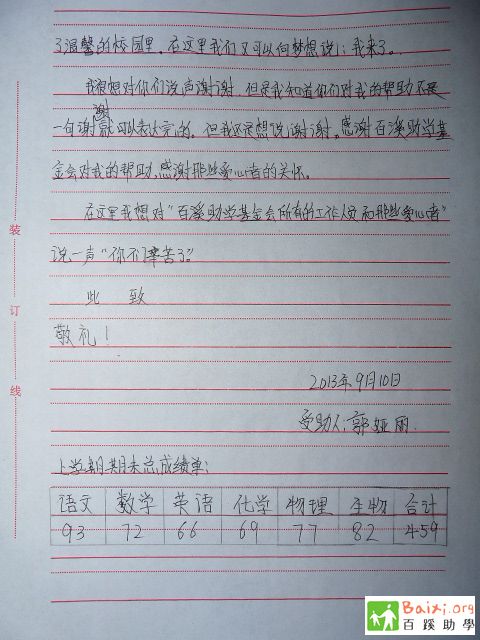 了温馨的校园里。在这里我们又可以向梦想说：我来了。
我很想对你们说声谢谢，但是我知道你们对我的帮助不是
一句谢谢就可以表达完的，但我还是想说谢谢。感谢百溪助学基
金会对我的帮助，感谢那些爱心者的关怀。
在这里我想对“百溪助学基金会所有的工作人员和那些爱心者”
说一声“你们辛苦了”。
此 致
敬礼！
2013年9月10日
受助人：郭娅丽
上学期期末总成绩单：
语文 数学 英语 化学 物理 生物 合计
93 72 66 69 77 82 459
装
订
线
Baixi.org
百蹊助學